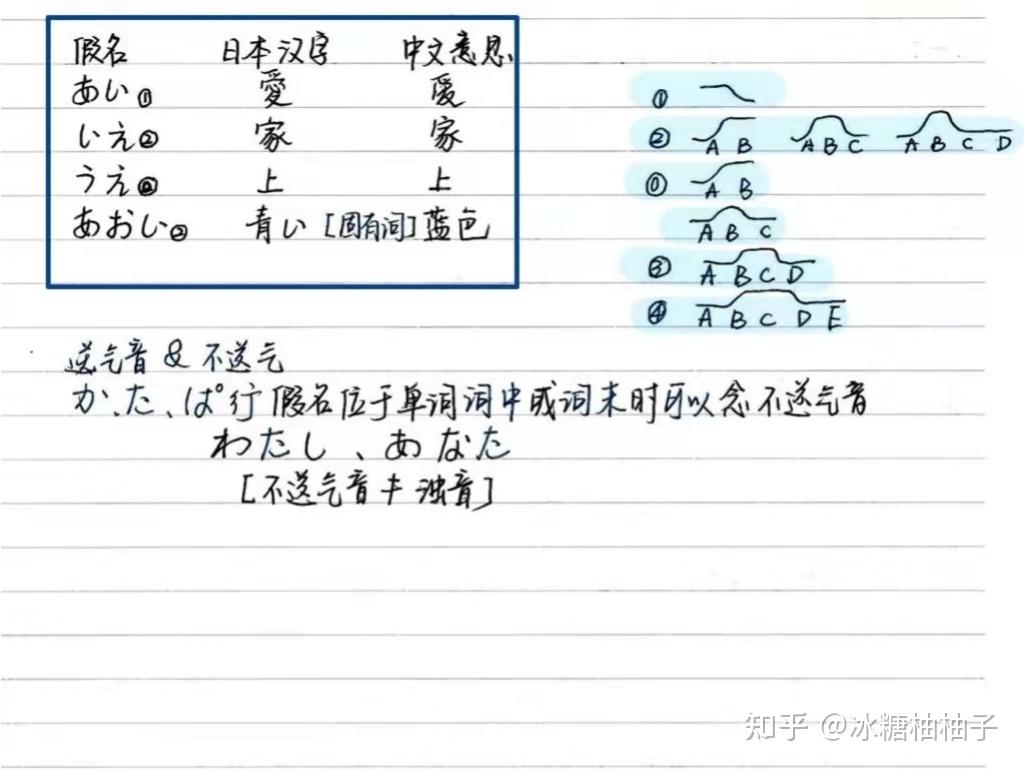 假名 日本汉字 中文意思
あい① 愛 爱
いえ② 家 家
うえ⓪ 上 上
あおい② 青い [固有词] 蓝色
①
② A B A B C A B C D
⓪ A B
A B C
③ A B C D
④ A B C D E
送气音 & 不送气
か、た、ぱ行 假名位于单词词中或词末时可以念不送气音
わたし、あなた
[不送气音≠浊音]
知乎 @冰糖柚柚子